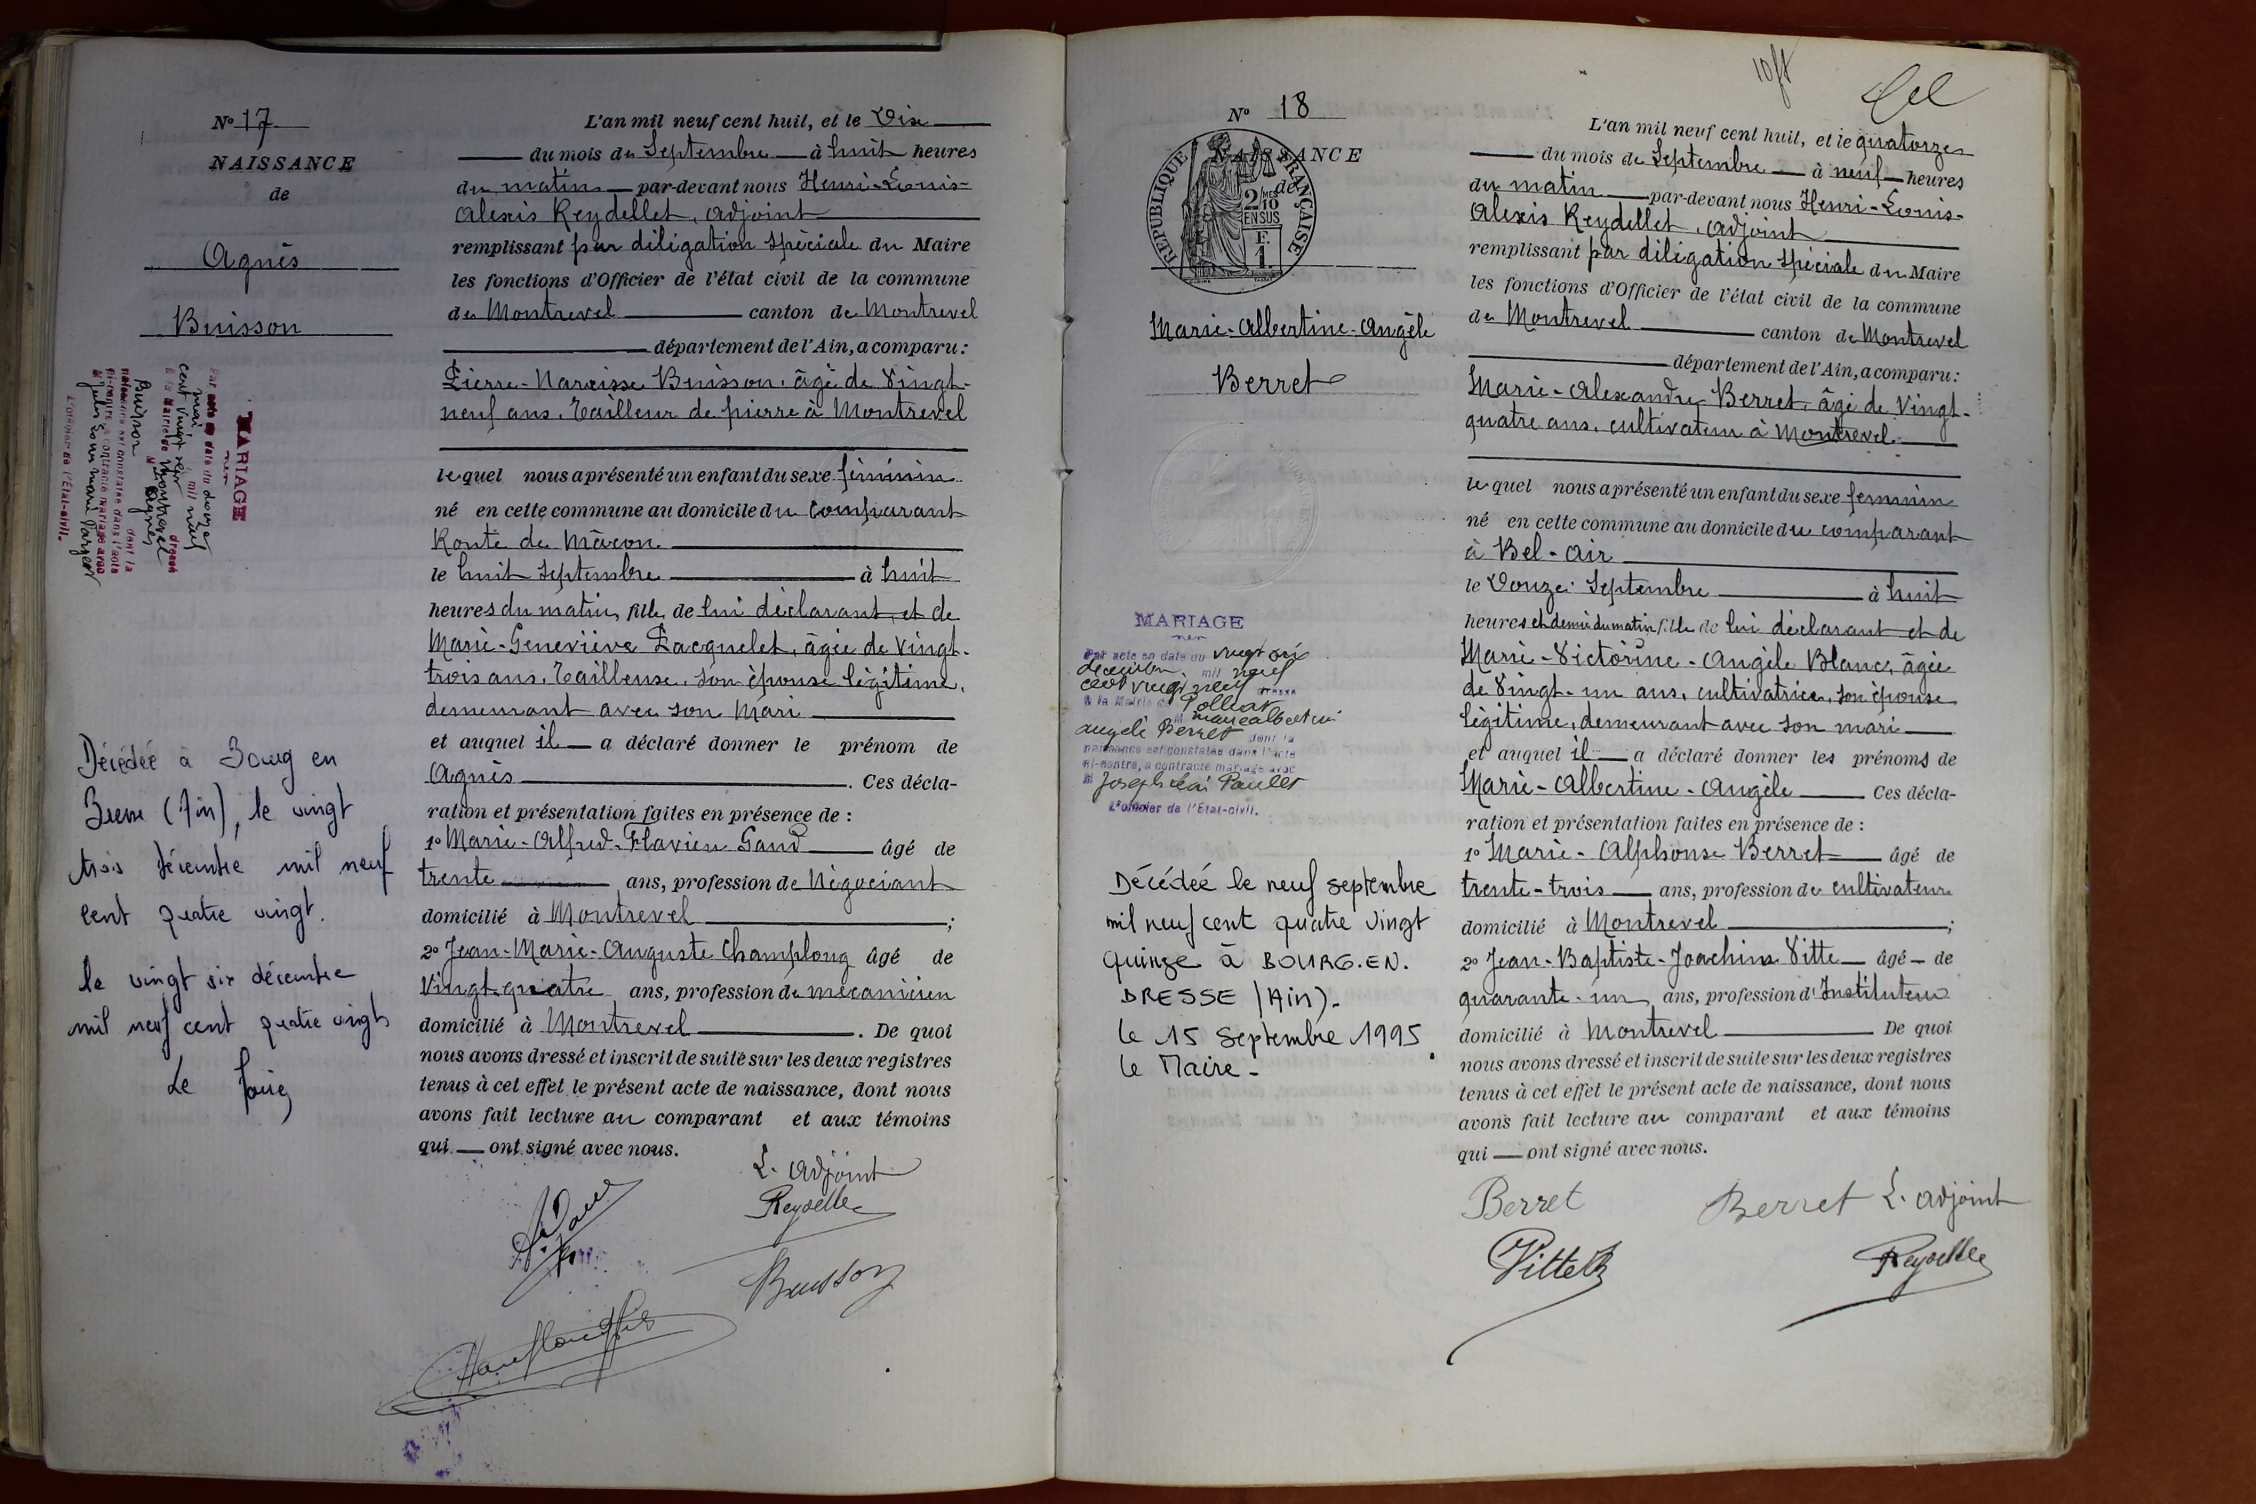 Nº 17
NAISSANCE
de
Agnès
Buisson
MARIAGE
Par acte en date du douze
mai mil neuf
cent vingt sept dressé
à la Mairie de Montrevel
Agnès
Buisson dont la
naissance est constatée dans l'acte
ci-contre, a contracté mariage avec
M Jules
L'officier de l'Etat-civil.
Décédée à Bourg en
Bresse (Ain), le vingt
trois décembre mil neuf
cent quatre vingt.
le vingt six décembre
mil neuf cent quatre vingts
Le
L'an mil neuf cent huit, et le Dix
du mois de Septembre à huit heures
du matin par-devant nous Henri-Louis-
Alexis Reydellet, adjoint
remplissant par délégation spéciale du Maire
les fonctions d'Officier de l'état civil de la commune
de Montrevel canton de Montrevel
département de l'Ain, a comparu:
Pierre-Narcisse Buisson, âgé de Vingt-
neuf ans, Tailleur de pierre à Montrevel
lequel nous a présenté un enfant du sexe féminin
né en cette commune au domicile du comparant
Route de Mâcon
le huit Septembre à huit
heures du matin, fille de lui déclarant et de
Marie-Geneviève Pacquelet, âgée de Vingt-
trois ans, Tailleuse, son épouse légitime,
demeurant avec son mari
et auquel il a déclaré donner le prénom de
Agnès. Ces décla-
ration et présentation faites en présence de:
1º Marie-Alfred-Flavien Gand âgé de
trente ans, profession de Négociant
domicilié à Montrevel;
2º Jean-Marie-Auguste Champlong âgé de
Vingt-quatre ans, profession de mécanicien
domicilié à Montrevel. De quoi
nous avons dressé et inscrit de suite sur les deux registres
tenus à cet effet le présent acte de naissance, dont nous
avons fait lecture au comparant et aux témoins
qui ont signé avec nous.
L'adjoint
Reydellet
Buisson
Nº 18
NAISSANCE
de
RÉPUBLIQUE FRANÇAISE
2/10
EN SUS
F.
1.
Marie-Albertine-Angèle
Berret
MARIAGE
Par acte en date du vingt six
décembre mil neuf
cent vingt neuf dressé
à la Mairie de Polliat
M marie albertine
angèle Berret dont la
naissance est constatée dans l'acte
ci-contre, a contracté mariage avec
M Joseph Paulet
L'officier de l'Etat-civil.
Décédée le neuf septembre
mil neuf cent quatre vingt
quinze à BOURG.EN.
BRESSE (Ain).
le 15 Septembre 1995
le Maire.
L'an mil neuf cent huit, et le quatorze
du mois de Septembre à neuf heures
du matin par-devant nous Henri-Louis-
Alexis Reydellet, adjoint
remplissant par délégation spéciale du Maire
les fonctions d'Officier de l'état civil de la commune
de Montrevel canton de Montrevel
département de l'Ain, a comparu:
Marie-Alexandre Berret, âgé de Vingt-
quatre ans, cultivateur à Montrevel
lequel nous a présenté un enfant du sexe féminin
né en cette commune au domicile du comparant
à Bel-Air
le Douze Septembre à huit
heures et demie du matin fille de lui déclarant et de
Marie-Victorine-Angèle Blanc, âgée
de Vingt-un ans, cultivatrice, son épouse
légitime, demeurant avec son mari
et auquel il a déclaré donner les prénoms de
Marie-Albertine-Angèle Ces décla-
ration et présentation faites en présence de:
1º Marie-Alphonse Berret âgé de
trente-trois ans, profession de cultivateur
domicilié à Montrevel;
2º Jean-Baptiste-Joachim Vitte âgé de
quarante-un ans, profession d'Instituteur
domicilié à Montrevel De quoi
nous avons dressé et inscrit de suite sur les deux registres
tenus à cet effet le présent acte de naissance, dont nous
avons fait lecture au comparant et aux témoins
qui ont signé avec nous.
Berret Berret L'adjoint
Vitte Reydellet